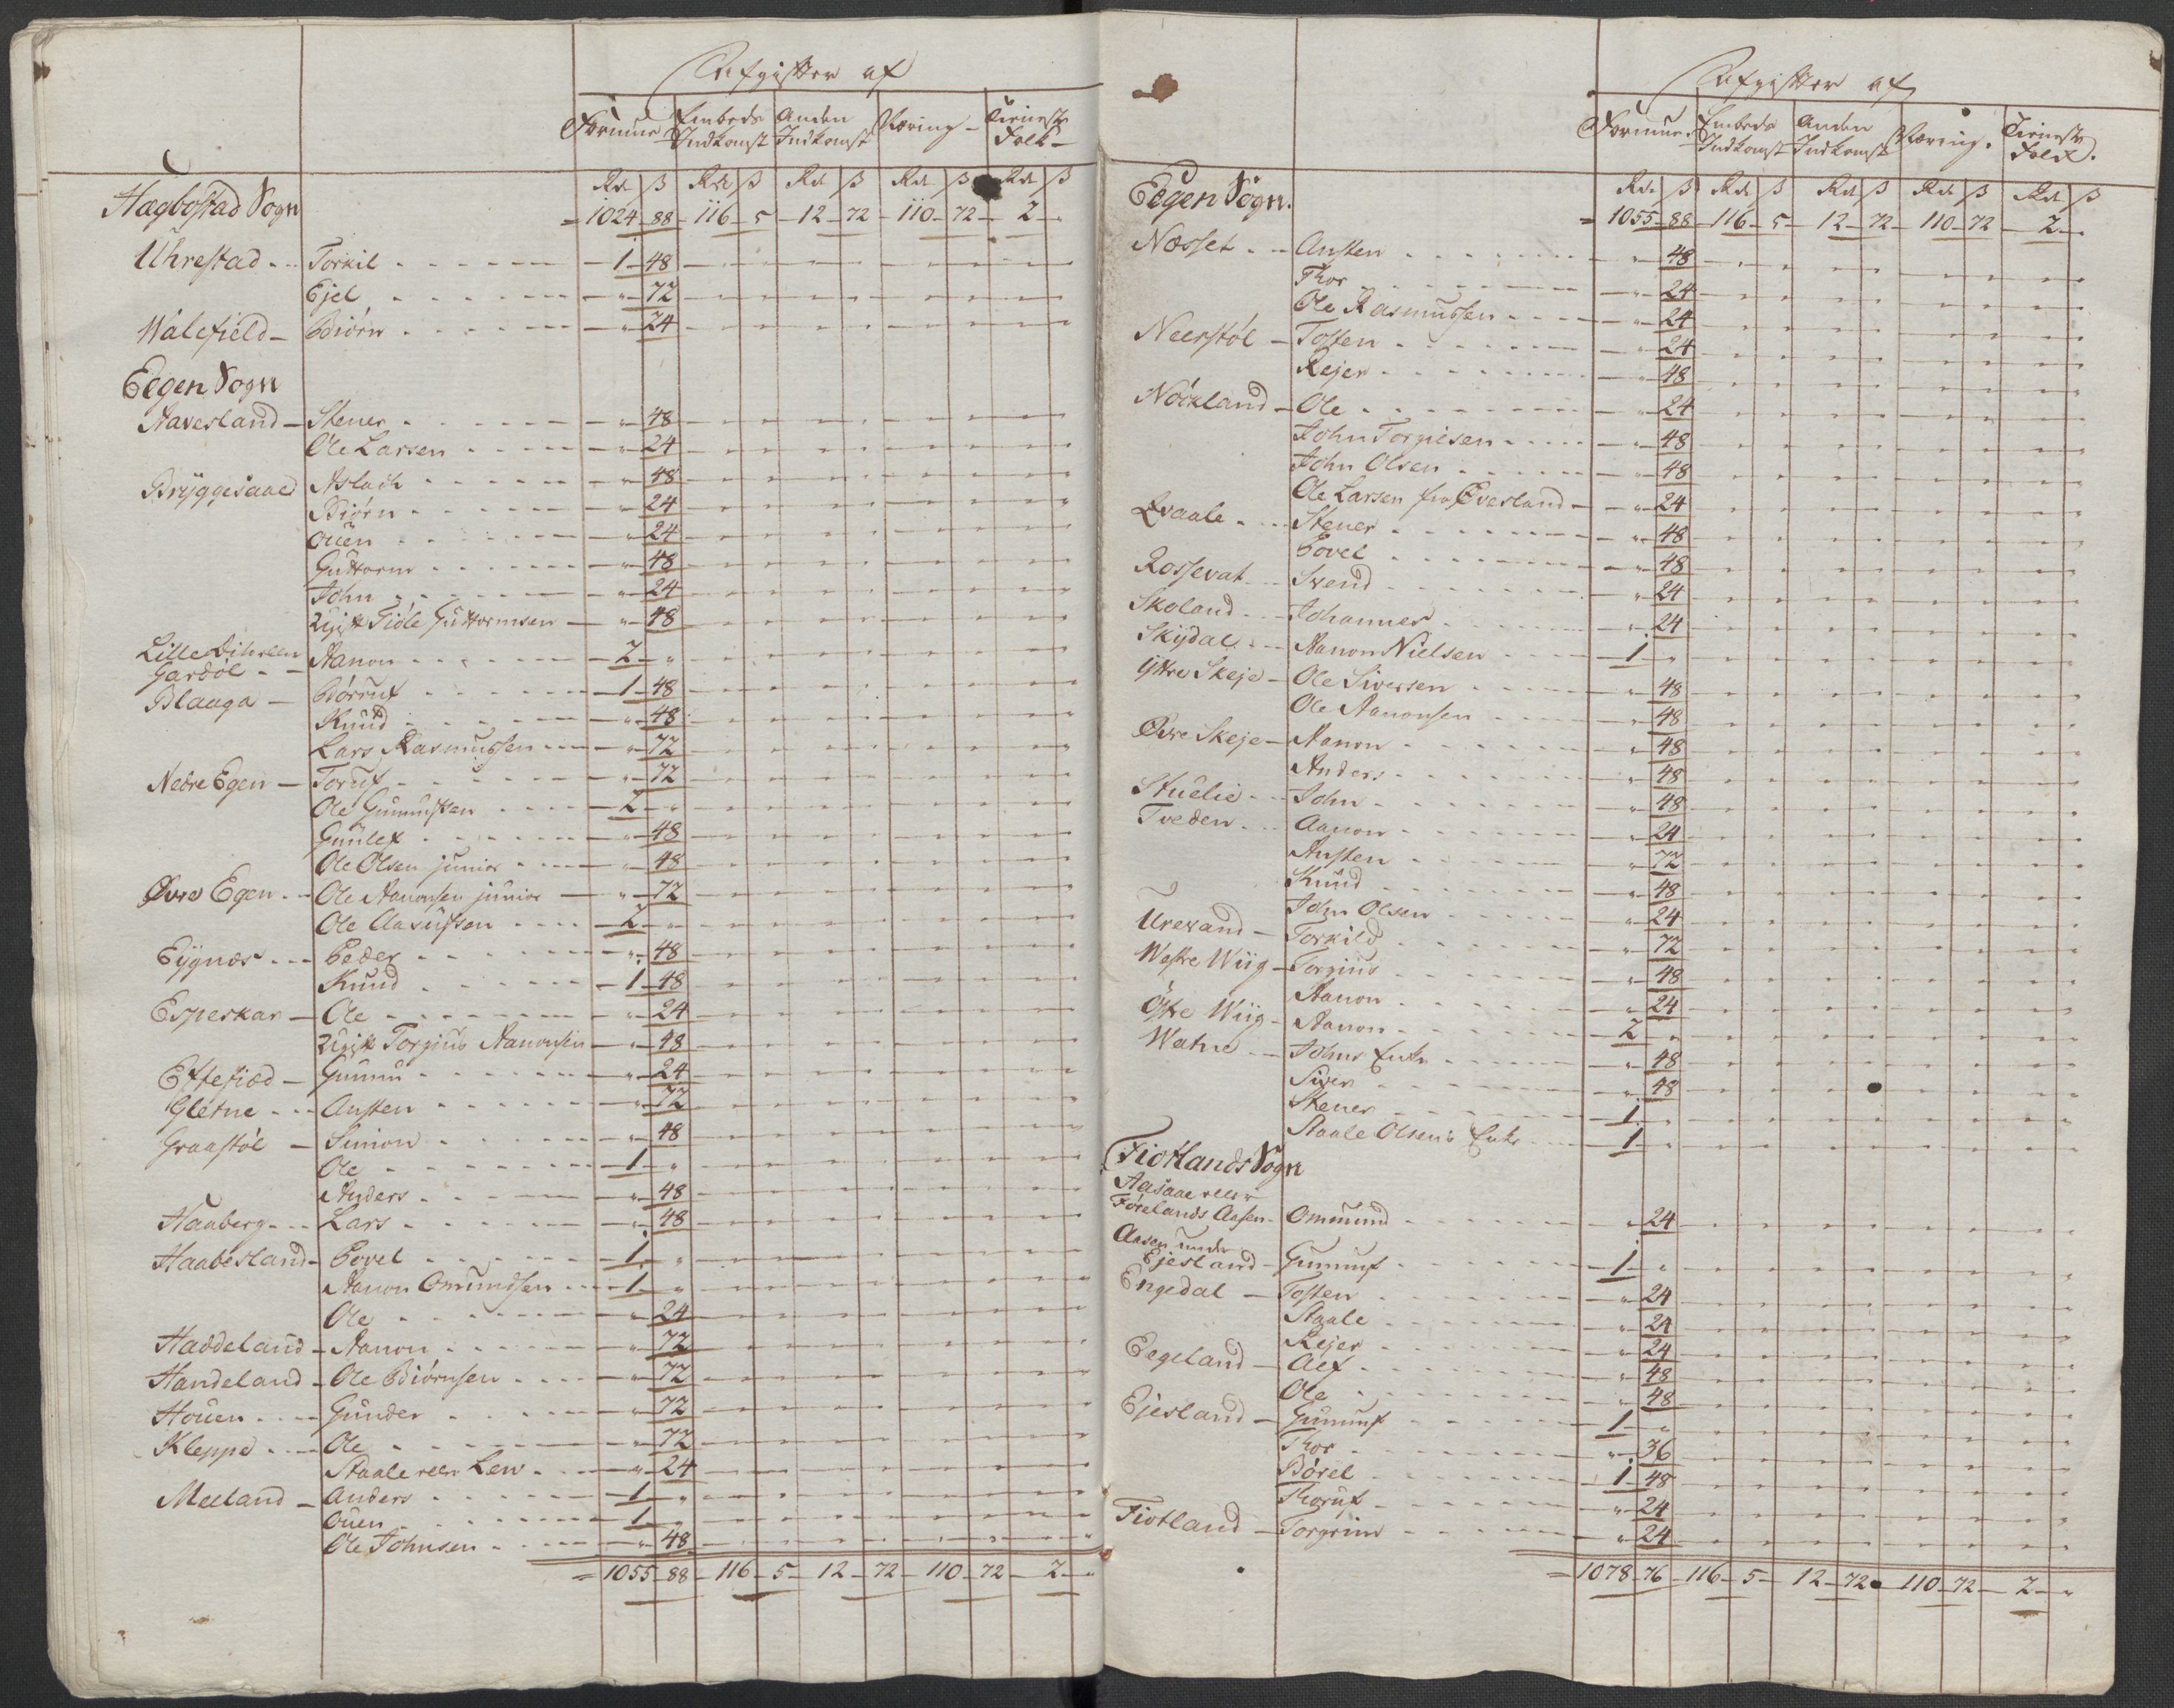 Afgifter af
Formue Embeds Indkomst Anden Indkomst Næring Tieneste Folk
Rd ß Rd ß Rd ß Rd ß Rd ß
Hægbostad Sogn = 1024 - 88 - 116 - 5 - 12 - 72 - 110 - 72 - 2 - "
Uhrestad - Torkil - 1 - 48
Ejel - " - 72
Walefield - Biörn - " - 24
Eegen Sogn
Aavesland - Stener - " - 48
Ole Larsen - " - 24
Bryggesaaed Aslach - " - 48
Biörn - " - 24
Ouen - " - 24
Guttorm - " - 48
John - " - 24
Ugift Tiöle Guttormsen - " - 48
Lille
Gardöl - Aanon - 2 - "
Blaaga - Börruf - 1 - 48
Knud - " - 48
Lars Rasmussen - " - 72
Nedre Egen - Toruf - " - 72
Ole Gunnufsen - 2 - "
Gunlef - " - 48
Ole Olsen junior - " - 48
Øvre Egen - Ole Aanonsen junior - " - 72
Ole Aasufsen - 2 - "
Eygnæs - Peder - " - 48
Knud - 1 - 48
Esperkar - Ole - " - 24
Ugift Torgius Aanonsen - " - 48
Eftefiæd - Gunnu - " - 24
Gletne - Austen - " - 72
Graastöl - Simon - " - 48
Ole - 1 - "
Anders - " - 48
Haaberg - Lars - " - 48
Haabesland - Povel - 1 - "
Aanon Omundsen - 1 - "
Ole - " - 24
Haddeland - Aanon - " - 72
Handeland - Ole Biörnsen - " - 72
Houen - Gunder - " - 72
Kleppe - Ole - " - 72
Staale eller Lew - " - 24
Meeland - Anders - 1 - "
Ouen - 1 - "
Ole Johnsen - " - 48
= 1055 - 88 - 116 - 5 - 12 - 72 - 110 - 72 - 2 - "
Afgifter af
Formue. Embeds Indkomst Anden Indkomst Næring. Tieneste Folk.
Rd ß Rd ß Rd ß Rd ß Rd ß
Eegen Sogn. = 1055 - 88 - 116 - 5 - 12 - 72 - 110 - 72 - 2 - "
Næsset - Austen - " - 48
Thor - " - 24
Ole Rasmussen - " - 24
Neerstöl - Tosten - " - 24
Rejer - " - 48
Nöckland - Ole - " - 24
John Torgiesen - " - 48
John Olsen - " - 48
Ole Larsen fra Øvesland - " - 24
Qvaale - Stener - " - 48
Povel - " - 48
Rossevat - Svend - " - 24
Skoland - Johannes - " - 24
Skijdal - Aanon Nielsen - 1 - "
Yttre Skeje - Ole Siversen - " - 48
Ole Aanonsen - " - 48
Øvre Skeje - Aanon - " - 48
Anders - " - 48
Stuelie - John - " - 48
Tveden - Aanon - " - 24
Austen - " - 72
Knud - " - 48
John Olsen - " - 24
Urevand - Torkild - " - 72
Westre Wiig - Torgius - " - 48
Aanon - " - 24
Östre Wiig - Aanon - 2 - "
Watne - Johns Enke - " - 48
Siver - " - 48
Stener - 1 - "
Staale Olsens Enke - 1 - "
Fiotlands Sogn
Aasaae eller
Förelands Aasen - Ommund - " - 24
Aasen under
Ejesland - Gunnuf - 1 - "
Engedal - Tosten - " - 24
Staale - " - 24
Rejer - " - 24
Eegeland - Alf - " - 48
Ole - " - 48
Ejesland - Gunnuf - 1 - "
Thor - " - 36
Börel - 1 - 48
Thoruf - " - 24
Fiotland - Torgrim - " - 24
= 1078 - 76 - 116 - 5 - 12 - 72 - 110 - 72 - 2 - "